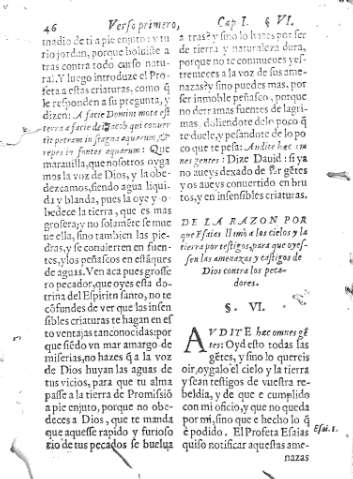 46 Verso primero, Cap I. § VI.
tnadio de ti a pie enjuto: y tu
rio jordan, porque bolviste a
tras contra todo curso natu
ral. Y luego introduze el Profe
feta a estas criaturas, como q̃
le responden a su pregunta, y
dizen: A facie Domini mota est
terra a facie dei Iacob qui conver
tit petram in stagna aquarum, & 
rupes in fontes aquarum: Que
maravilla, que nosotros oyga
mos la voz de Dios, y la obe-
dezcamos, siendo agua liqui-
da y blanda, pues la oye y o-
bedece la tierra, que es mas
grosera; y no solamẽte se mue
ue ella, sino tambien las pie-
dras, y se conuierten en fuen-
tes, y los peñascos en estãques
de aguas. Ven aca pues grosse
ro pecador, que oyes esta do-
trina del Espiritu santo, no te
cõfundes de ver que las insen
sibles criaturas te hagan en es
to ventajas tan conocidas: por
que siẽdo vn mar amargo de
miserias, no hazes q̃ a la voz
de Dios huyan las aguas de
tus vicios, para que tu alma
passe a la tierra de Promissiõ
a pie enjuto, porque no obe-
deces a Dios, que te manda
que aquesse rapido y furioso
rio de tus pecados se buelua
a tras? y sino lo hazes por ser
de tierra y naturaleza dura,
porque no te conmueues y es-
tremeces a la voz de sus ame-
nazas? y sino puedes mas, por
ser inmoble peñasco, porque
no derramas fuentes de lagri-
mas, doliendote de lo poco q̃
te duele, y pesandote de lo po
co que te pesa: Audite hæc om
nes gentes: Dize Dauid: si ya
no aueys dexado de ser gẽtes
y os aueys conuertido en bru
tos, y en insensibles criaturas.
DE LA RAZON POR
que Esaias llamò a los cielos y la
tierra por testigos, para que oyes-
sen las amenazas y castigos de
Dios contra los peca-
dores.
§. VI.
AVDITE hæc omnes gẽ
tes: Oyd esto todas las
gẽtes, y sino lo quereis
oir, oygalo el cielo y la tierra
y sean testigos de vuestra re-
beldia, y de que e cumplido
con mi oficio, y que no queda
por mi, sino que e hecho lo q̃
è podido. El Profeta Esaias
quiso notificar aquestas ame-
Esai. 1.
nazas